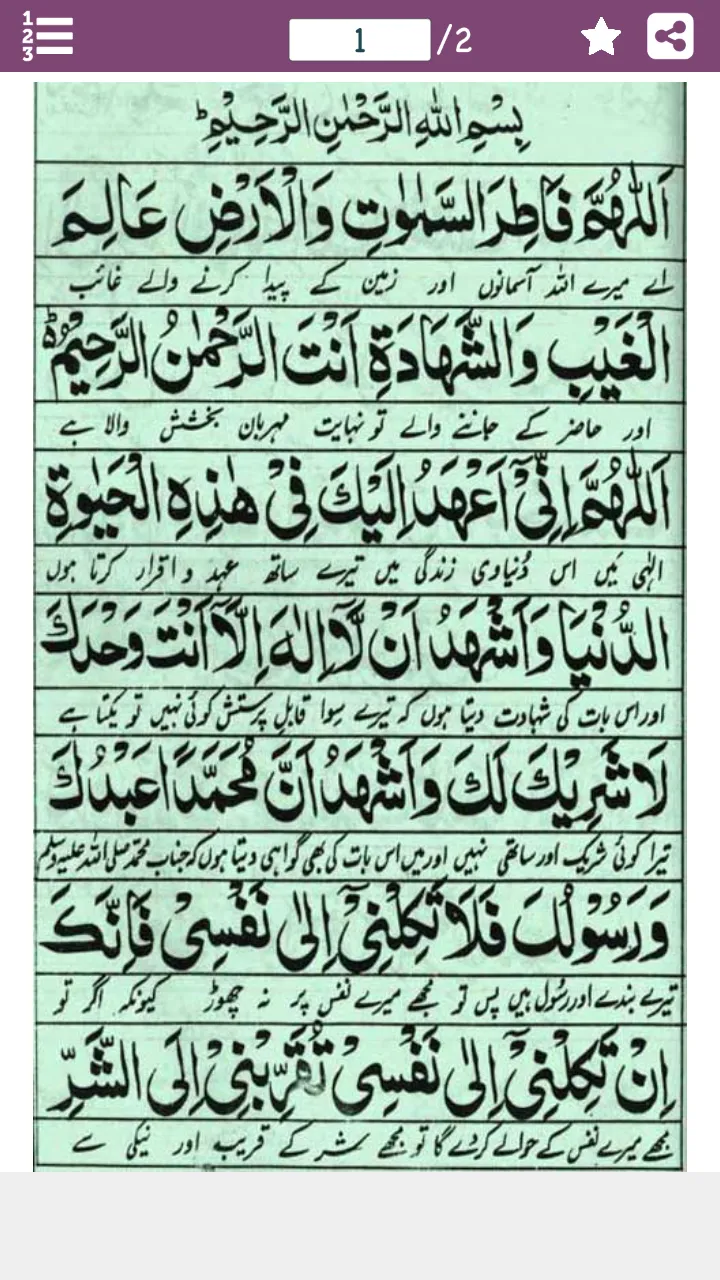 1
2
3
1 /2
بِسْمِ اللّٰهِ الرَّحْمٰنِ الرَّحِيْمِؕ
اَللّٰهُمَّ فَاطِرَ السَّمٰوٰتِ وَالْاَرْضِ عَالِمَ
اے میرے اللہ آسمانوں اور زمین کے پیدا کرنے والے غائب
الْغَيْبِ وَالشَّهَادَةِ اَنْتَ الرَّحْمٰنُ الرَّحِيْمُؕ
اور حاضر کے جاننے والے تو نہایت مہربان بخشش والا ہے
اَللّٰهُمَّ اِنِّىْٓ اَعْهَدُ اِلَيْكَ فِىْ هٰذِهِ الْحَيٰوةِ
الٰہی میں اس دُنیاوی زندگی میں تیرے ساتھ عہد و اقرار کرتا ہوں
الدُّنْيَا وَاَشْهَدُ اَنْ لَّآ اِلٰهَ اِلَّآ اَنْتَ وَحْدَكَ
اور اس بات کی شہادت دیتا ہوں کہ تیرے سِوا قابلِ پرستش کوئی نہیں تو یکتا ہے
لَا شَرِيْكَ لَكَ وَاَشْهَدُ اَنَّ مُحَمَّدًا عَبْدُكَ
تیرا کوئی شریک اور ساتھی نہیں اور میں اس بات کی بھی گواہی دیتا ہوں کہ جناب محمّد صلی اللہ علیہ وسلم
وَرَسُوْلُكَ فَلَا تَكِلْنِىْٓ اِلٰى نَفْسِىْ فَاِنَّكَ
تیرے بندے اور رسُول ہیں پس تو مجھے میرے نفس پر نہ چھوڑ کیونکہ اگر تو
اِنْ تَكِلْنِىْٓ اِلٰى نَفْسِىْ تُقَرِّبْنِىْ اِلَى الشَّرِّ
مجھے میرے نفس کے حوالے کر دے گا تو مجھے شر کے قریب اور نیکی سے